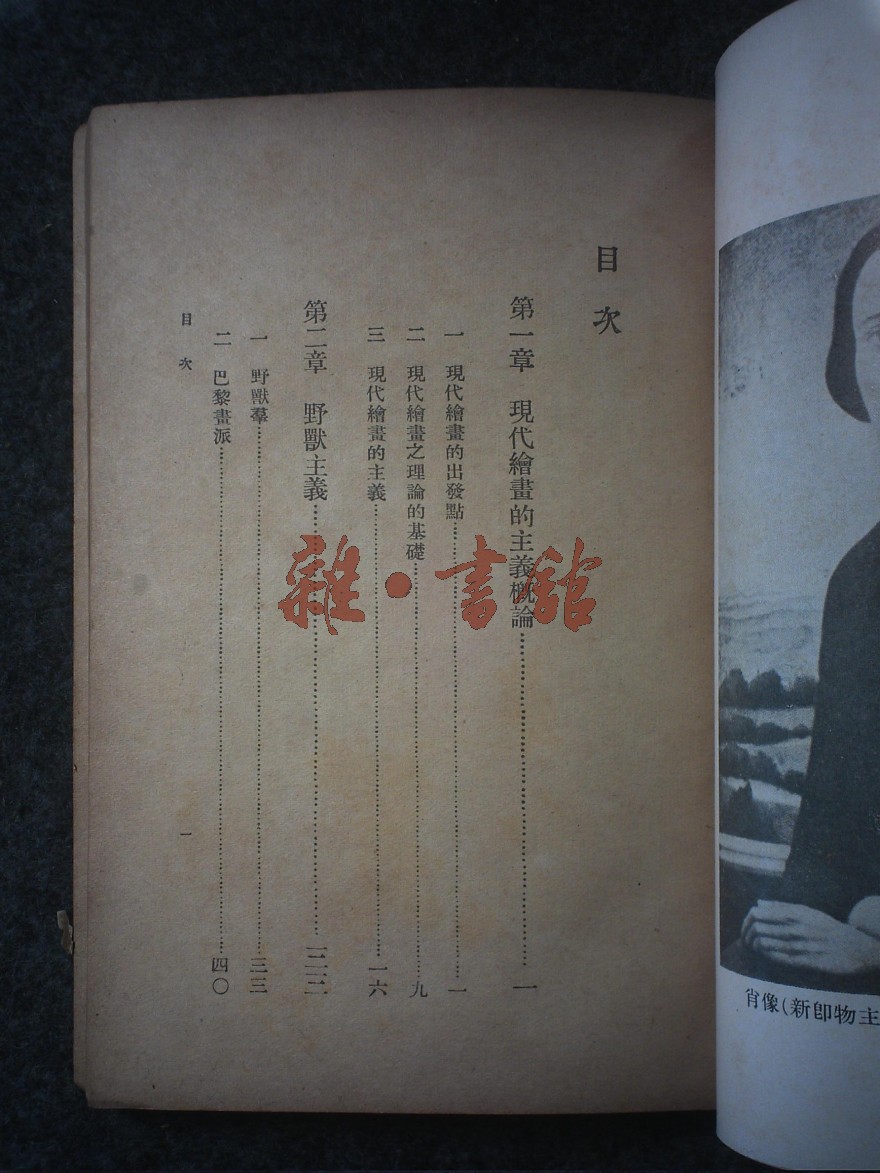 目次
第一章 現代繪畫的主義概論……………一
一 現代繪畫的出發點……………一
二 現代繪畫之理論的基礎……………九
三 現代繪畫的主義……………一六
第二章 野獸主義……………
一 野獸羣……………三三
二 巴黎畫派……………四〇
目次 一
雜·書館
肖像(新卽物主